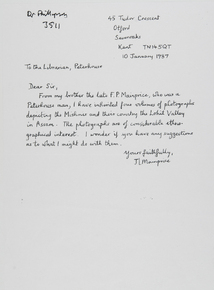 Dr Phillipson
3511
45 Tudor Crescent
Otford
Sevenoaks
Kent TN14 5QT
10 January 1987
To the Librarian, Peterhouse
Dear Sir,
From my brother the late J.P. Mainprice, who was a
Peterhouse man, I have inherited four volumes of photographs
depicting the Mishmis and their country the Lohit Valley
in Assam. The photographs are of considerable ethno-
graphical interest. I wonder if you have any suggestions
as to what I might do with them.
Yours faithfully,
Mainprice